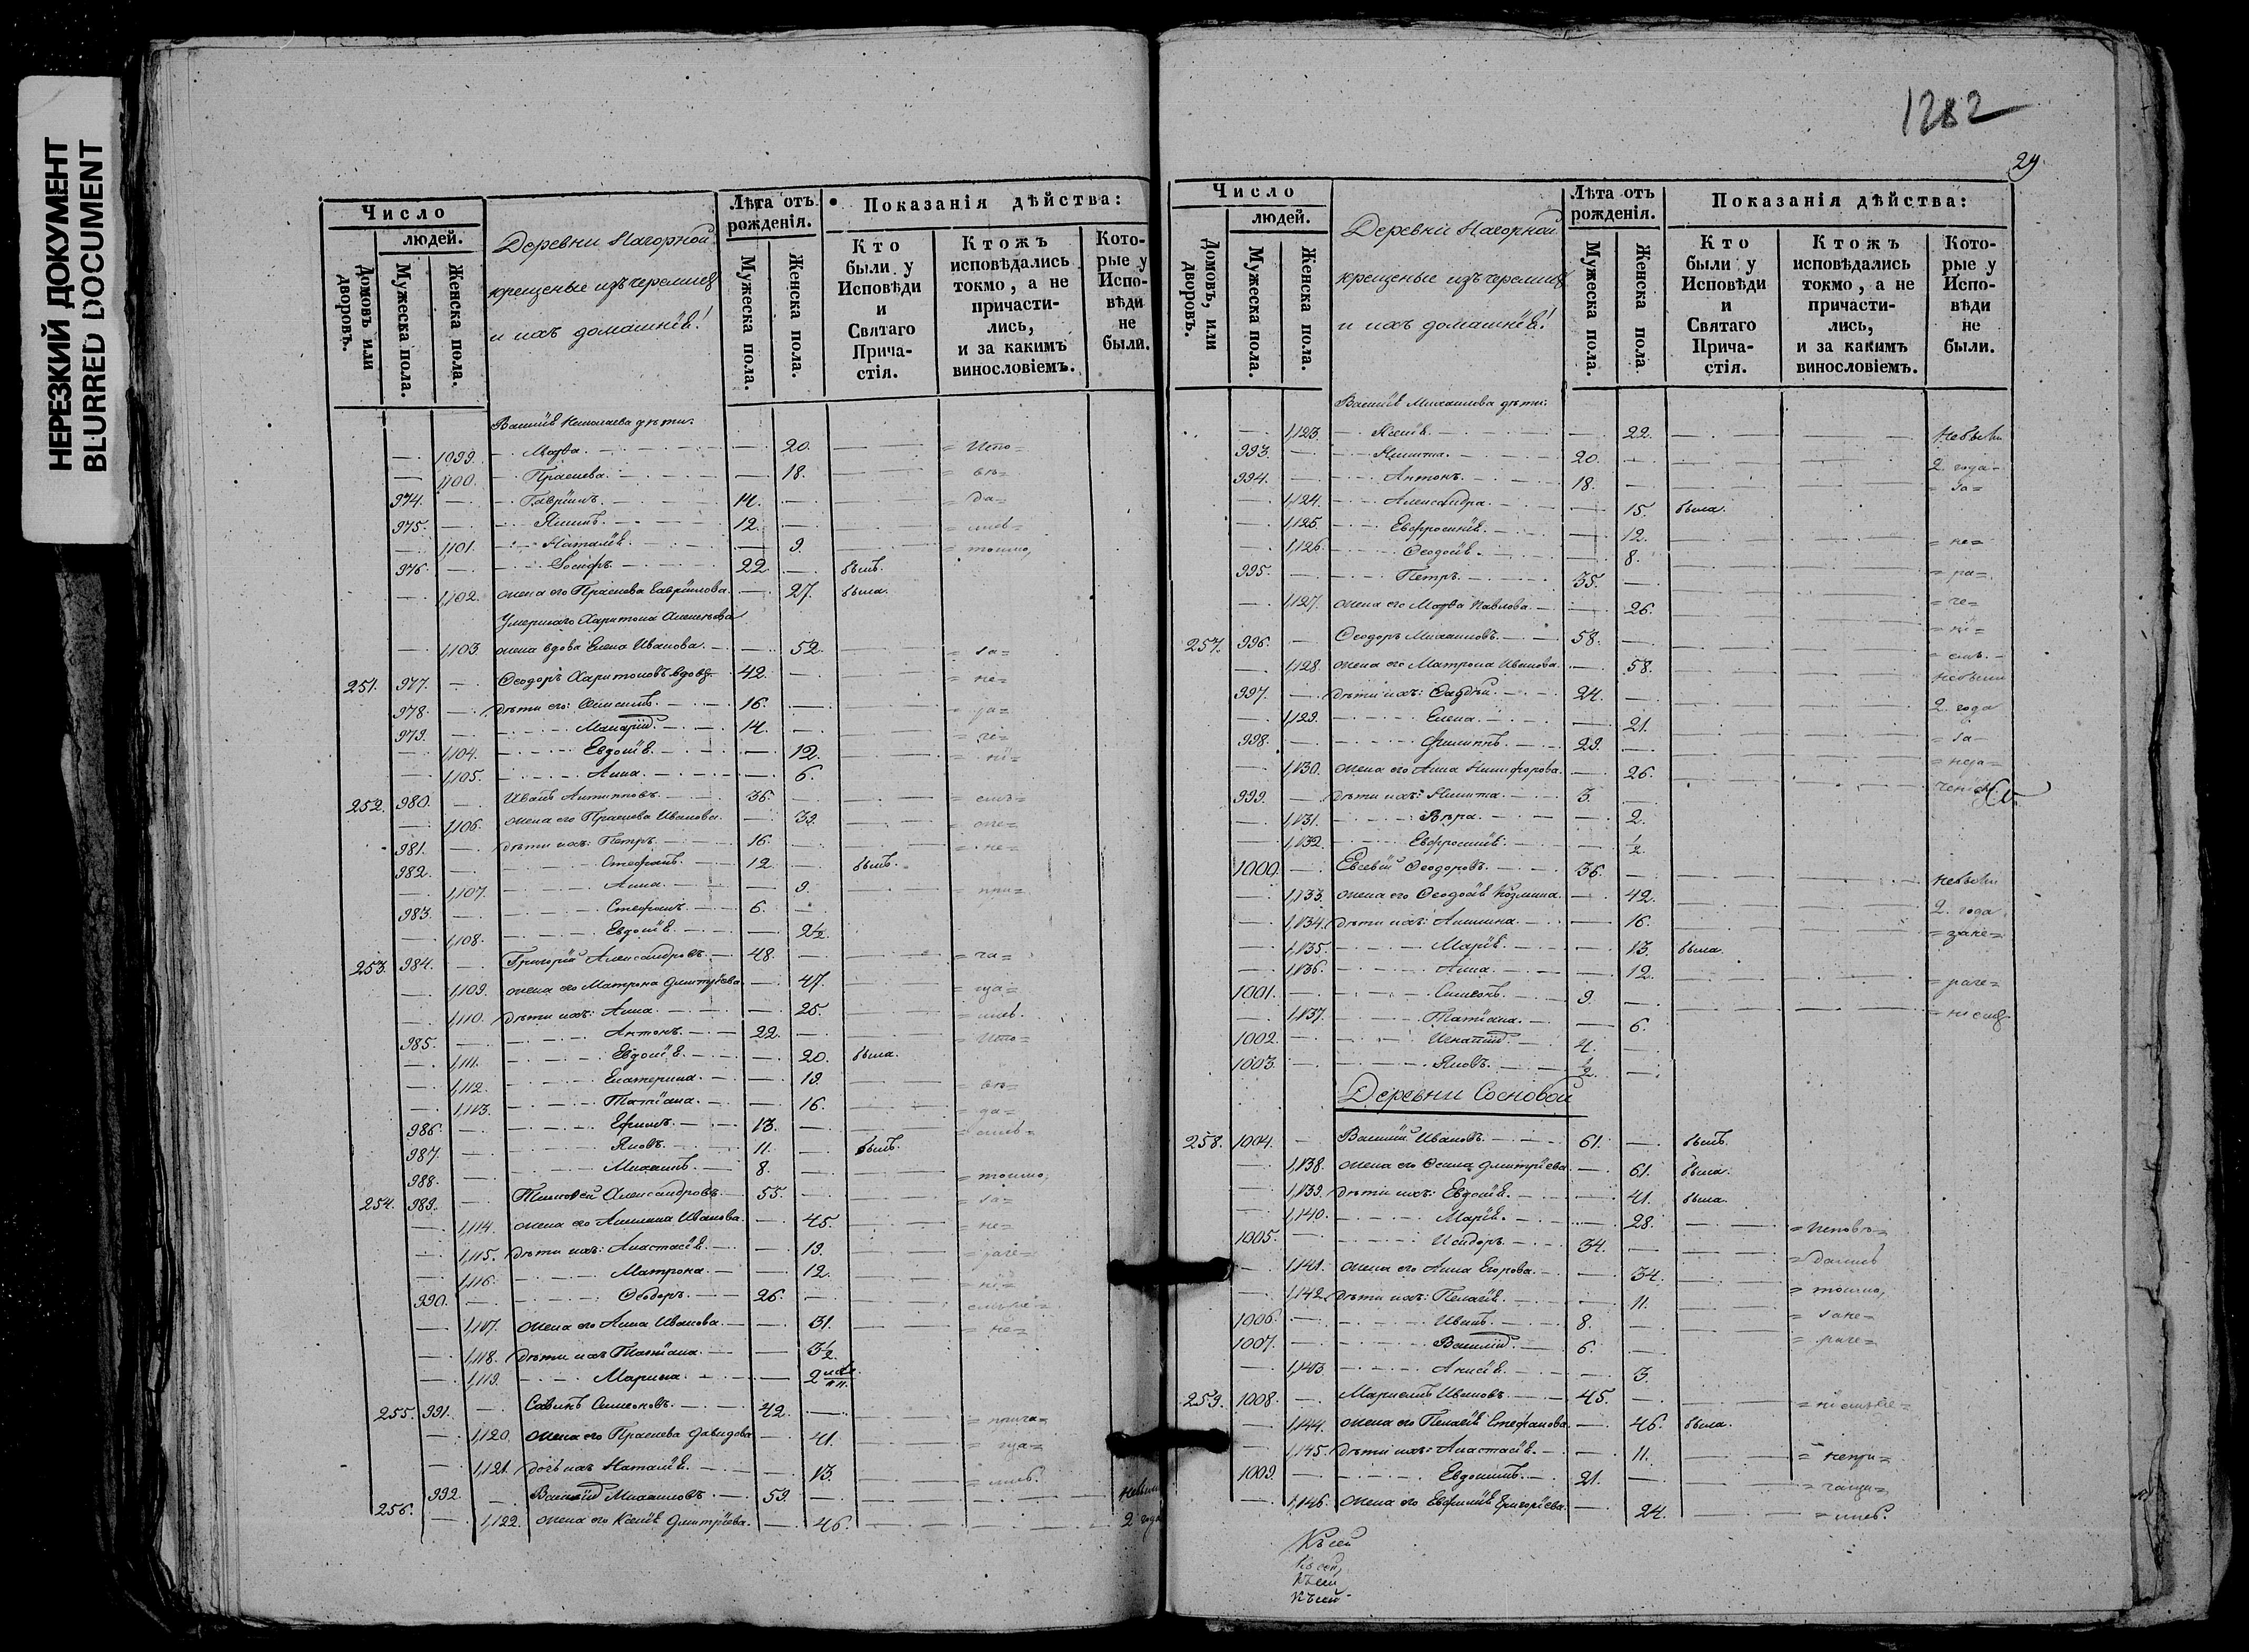 НЕРЕЗКИЙ ДОКУМЕНТ
BLURRED DOCUMENT
Число
людей.
Домовъ или дворовъ.
Мужеска пола.
Женска пола.
Деревни Нагорной
крещеные изъ черемисъ
и ихъ домашнiе!
Лѣта отъ рожденія.
Мужеска пола.
Женска пола.
Показанія дѣйства:
Кто были у Исповѣди и Святаго Причастія.
Ктожъ исповѣдались токмо, а не причастились, и за какимъ винословіемъ.
Которые у Исповѣди не были.
Василiя Николаева дѣти:
1099. Марѳа. 20. = Испо=
1100. Прасковa. 18. = вѣ=
974. Гаврiилъ. 14. = да=
975. Якимъ. 12. = лись=
1,101. Наталiя. 9. = токмо,
976. Іосифъ. 22. былъ.
1,102. жена его Прасковa Гаврiилова. 27. была.
Умершаго Харитона
1,103 жена вдова Елена Иванова. 52. = за=
251. 977. Ѳеодоръ Харитоновъ вдовъ. 42. = не=
978. дѣти его: 16. = ра=
979. Макарiй. 14. = че=
1,104. Евдокiя. 12. = нi=
1,105. Анна. 6.
252. 980. Иванъ Антиповъ. 36. = емъ=
1,106. жена его Прасковa Иванова. 39.
981. дѣти ихъ: Петръ. 16. = не=
982. Стефанъ. 12. былъ.
1,107. Анна. 9. = при=
983. Стефанъ. 6.
1,108. Евдокiя. 2½
253. 984. Григорiй Александровъ. 48. = ча=
1,109. жена его Матрона Дмитрiева. 47.
1,110. дѣти ихъ: Анна. 25. = лись.
985. Антонъ. 22. = Испо=
1,111. Евдокiя. 20. была.
1,112. Екатерина. 19. = вѣ=
1,113. Татiана. 16. = да=
986. Ефимъ. 13. = лись=
987. Яковъ. 11. былъ.
988. Михаилъ. 8. = токмо,
254. 989. Тимоѳей Александровъ. 55. = за=
1,114. жена его Акилина Иванова. 45. = не=
1,115. дѣти ихъ: Анастасiя. 19. = раче=
1,116. Матрона. 12. = нi=
990. Ѳеодоръ. 26.
1,117. жена его Анна Иванова. 31. = не=
1,118. дѣти ихъ Татiана. 3½
1,119. Марина. 2
255. 991. Савинъ Симеоновъ. 42. = прича=
1,120. жена его Прасковa Давидова 41.
1,121. дочь ихъ Наталiя. 13. = лись.
256. 992. Василiй Михаиловъ. 59. небыли
1,122. жена его Ксенiя Дмитрiева. 46. 2 года
1282
29.
Число
людей.
Домовъ, или дворовъ.
Мужеска пола.
Женска пола.
Деревни Нагорной
крещеные изъ черемисъ
и ихъ домашнiе!
Лѣта отъ рожденія.
Мужеска пола.
Женска пола
Показанія дѣйства:
Кто были у Исповѣди и Святаго Причастія.
Ктожъ исповѣдались токмо, а не причастились, и за какимъ винословіемъ.
Которые у Исповѣди не были.
Василiя Михаилова дѣти:
1,123. Ксенiя. 22. небыли
993. Никита. 20. 2. года=
994. Антонъ. 18. = за=
1,124. Александра. 15. была.
1,125. Евфросинiя. 12. = не=
1,126. Ѳеодосiя. 8.
995. Петръ. 35. = ра=
1,127. жена его Марѳа Павлова. 26. = че=
257. 996. Ѳеодоръ Михаиловъ. 58. = нi=
1,128. жена его Матрона Иванова. 58. = емъ.
997. дѣти ихъ: Ѳаддей. 24. небыли
1,129. Елена. 21. 2. года
998. Филиппъ. 29. = за=
1,130. жена его Анна Никифорова. 26. = нера=
999. дѣти ихъ: Никита. 3. ченiемъ
1,131. Вѣра. 2.
1,132. Евфросинiя. ½
1000. Евсевiй Ѳеодоровъ. 36. небыли
1,133. жена его Ѳеодосiя Козмина. 42. 2. года
1,134. дѣти ихъ: Акилина. 16. = зане=
1,135. Марiя. 13. была.
1,136. Анна. 12. = раче=
1001. Симеонъ. 9.
1,137. Татiана. 6. = нiемъ.
1002. Игнатiй. 4.
1003. Яковъ. ½
Деревни Сосновой
258. 1004. Василiй Ивановъ. 61. былъ.
1,138. жена его Ѳекла Дмитрiева. 61. была.
1,139. дѣти ихъ: Евдокiя. 41. была.
1,140. Марiя. 28. = Исповѣ=
1005. Исидоръ. 34. = дались
1,141. жена его Анна Егорова. 34.
1,142. дѣти ихъ: Пелагiя. 11. = токмо,
1006. Иванъ. 8. = зане=
1007. Василiй. 6. = раче=
1,143. Анисiя. 3.
259. 1008. Ивановъ. 45.
1,144. жена его Пелагiя Стефанова. 46. была.
1,145. дѣти ихъ: Анастасiя. 11. = непри=
1009. Евдокимъ. 21.
1,146. жена его Евфимiя Григорiева. 24. = лись.
Къ сей
Къ сей
Къ сей
Къ сей